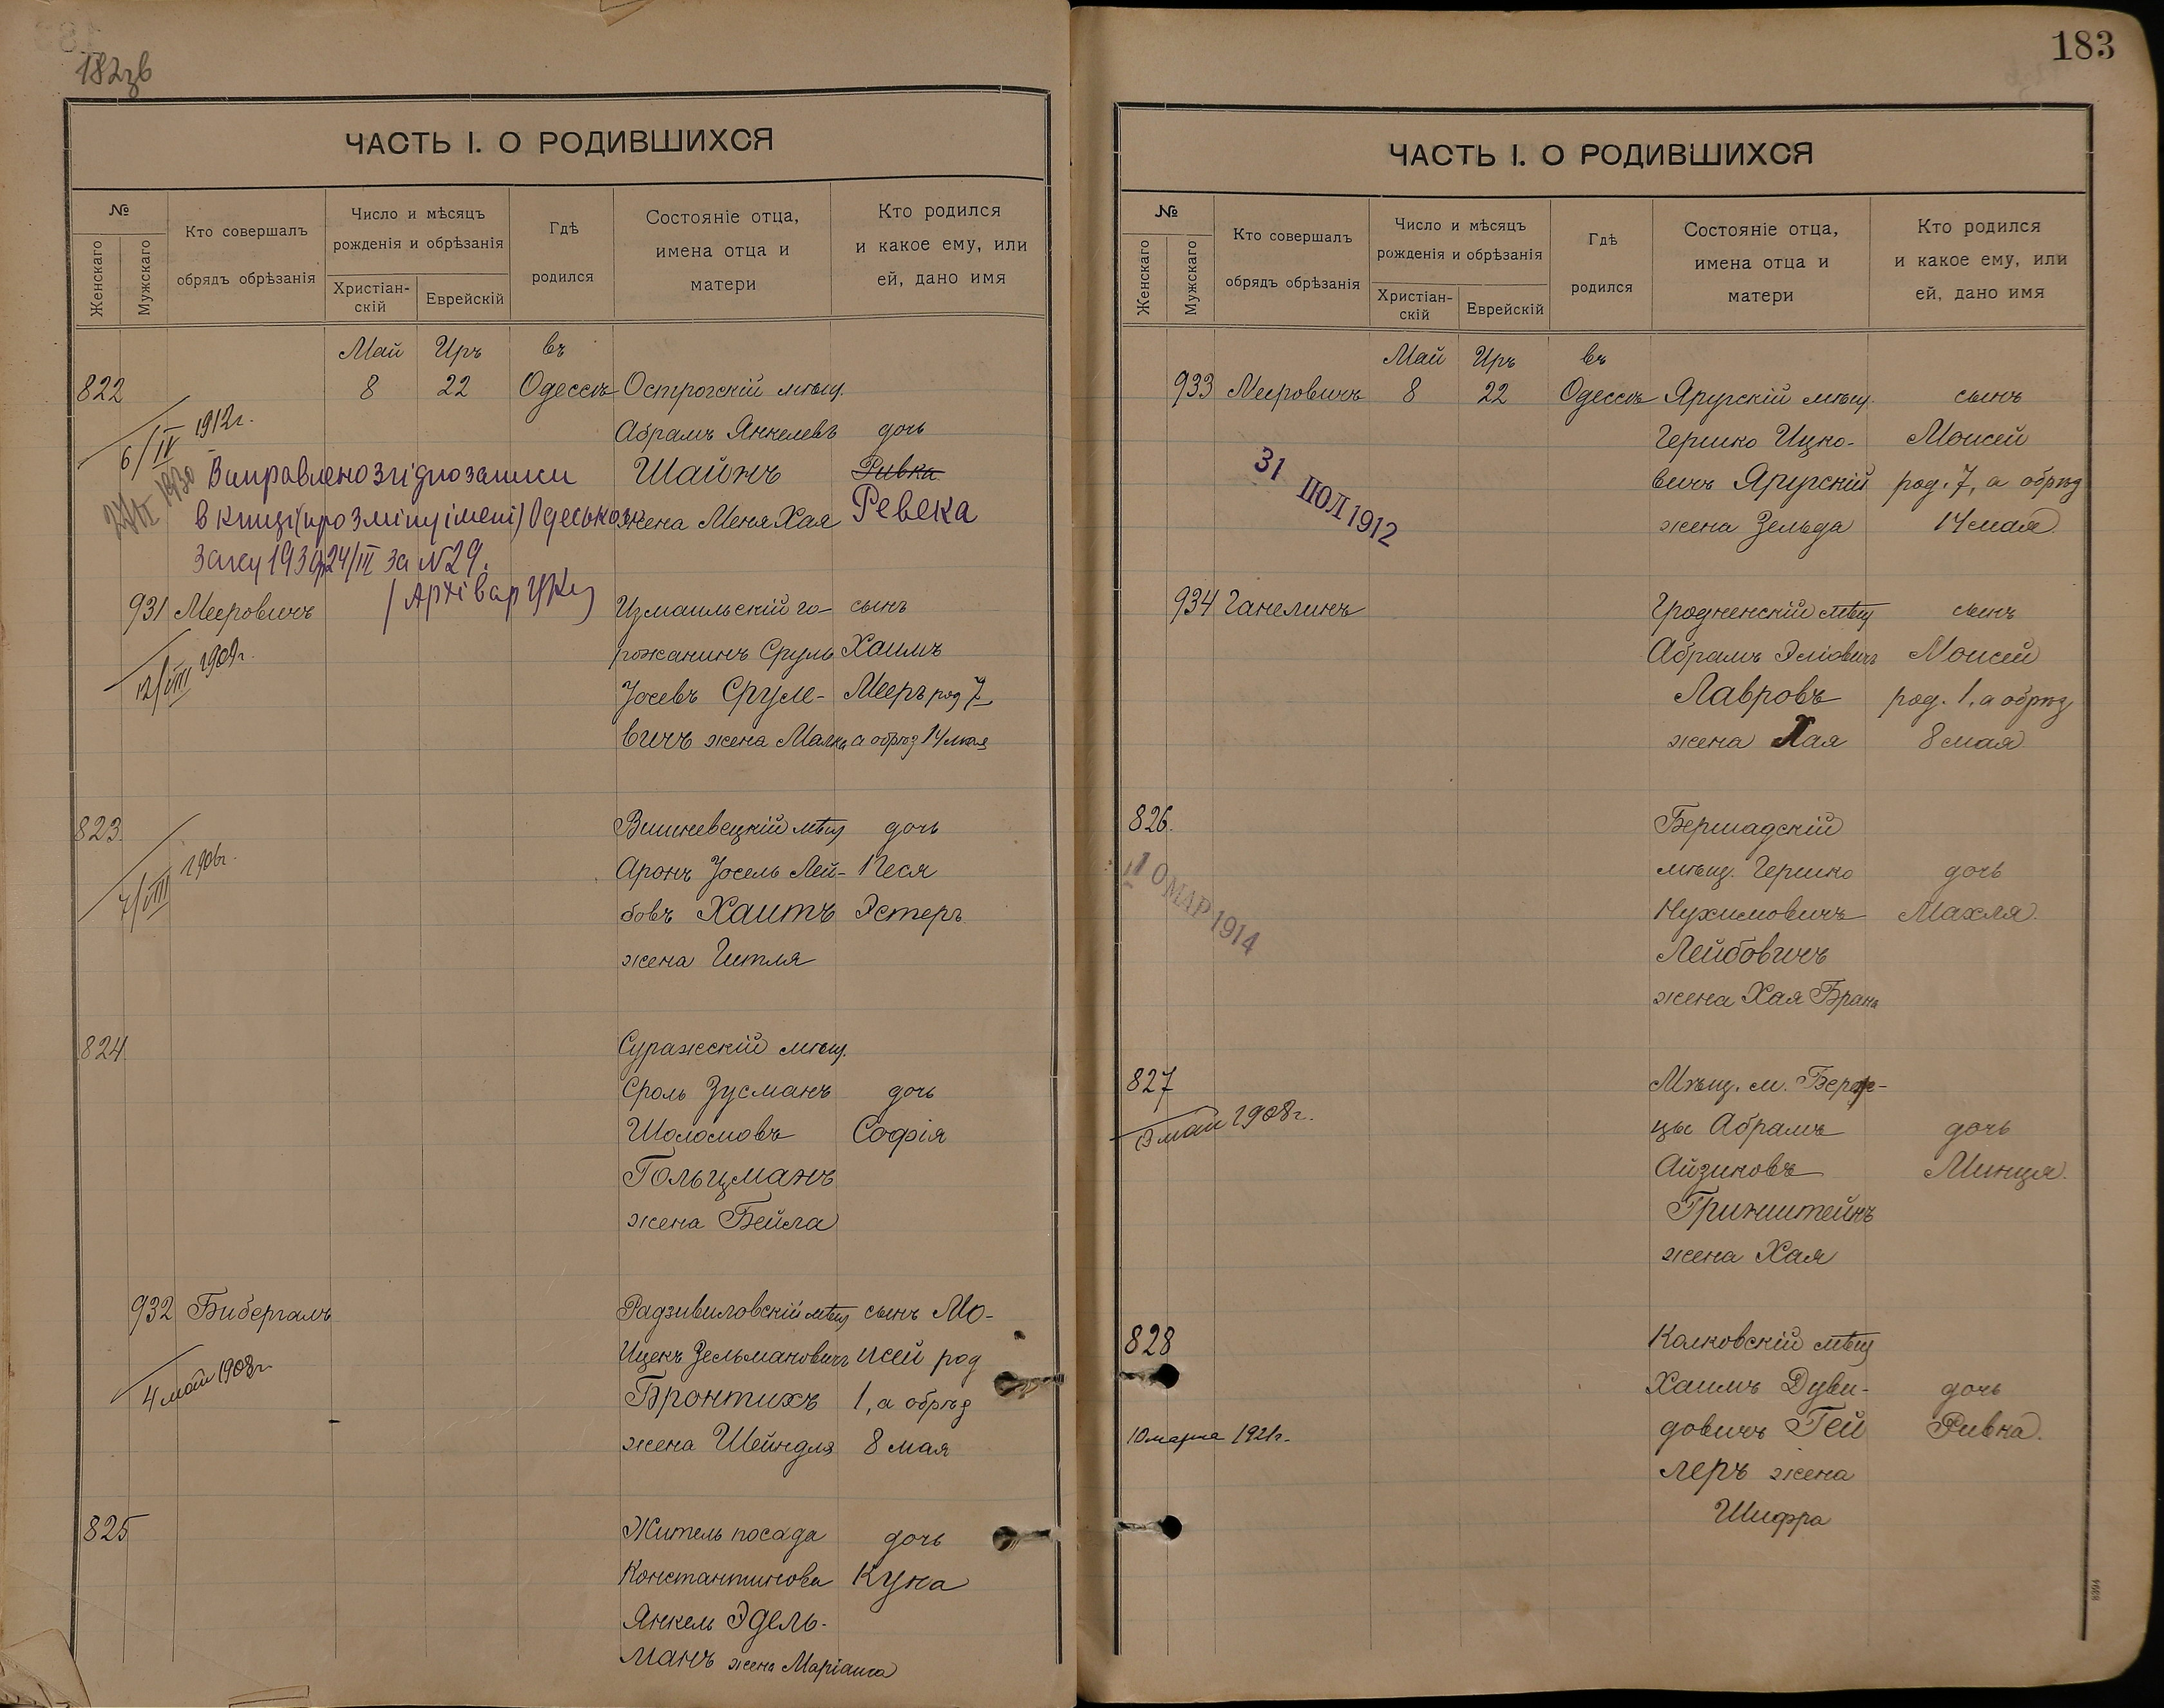 182зв
ЧАСТЬ I. О РОДИВШИХСЯ
№
Женскаго
Мужскаго
Кто совершалъ
обрядъ обрѣзанія
Число и мѣсяцъ
рожденія и обрѣзанія
Христіан-
скій
Еврейскій
Гдѣ
родился
Состояніе отца,
имена отца и
матери
Кто родился
и какое ему, или
ей, дано имя
Май Иръ въ
822 8 22 Одессѣ Острогскій мѣщ.
6/IV 1912г.
Абрамъ Янкелевъ дочь
Виправлено згідно записи Шайнъ Ривка
в книзі (про зміну імені) жена Меня Хая Ревека
1930 24/III за №29.
Архівар
931 Мееровичъ Измаильскій го- сынъ
12/VIII 1909г.
рожанинъ Сруль Хаимъ
Іосевъ Сруле- Мееръ род 7
вичъ жена Малка а обрѣз 14 мая
823. Вишневецкій мѣщ дочь
7/VIII 1906г.
Аронъ Іосель Лей- Песя
бовъ Хаитъ Эстеръ
жена Гитля
824 Суражскій мѣщ.
Сроль Зусманъ дочь
Шоломовъ Софія
Гольцманъ
жена Бейла
932 Бибергалъ Радзивиловскій мѣщ сынъ Мо-
4 май 1908г.
Ицекъ Зельмановичъ исей род
Бронтихъ 1, а обрѣз
жена Шейндля 8 мая
825 Житель посада дочь
Константинова Куна
Янкель Эдель-
манъ жена Маріаша
183
ЧАСТЬ I. О РОДИВШИХСЯ
№
Женскаго
Мужскаго
Кто совершалъ
обрядъ обрѣзанія
Число и мѣсяцъ
рожденія и обрѣзанія
Христіан-
скій
Еврейскій
Гдѣ
родился
Состояніе отца,
имена отца и
матери
Кто родился
и какое ему, или
ей, дано имя
Май Иръ въ
933 Мееровичъ 8 22 Одессѣ Яругскій мѣщ. сынъ
Гершко Ицко- Моисей
31 ІЮЛ 1912
вичъ Яругскій род. 7, а обрѣз
жена Зельда 14 мая
934 Ганелинъ Гродненскій мѣщ сынъ
Абрамъ Эліовичъ Моисей
Лавровъ род. 1, а обрѣз
жена Хая 8 мая
826. Бершадскій
10 МАР 1914
мѣщ. Гершко дочь
Нухимовичъ Махля.
Лейбовичъ
жена Хая Брана
827 Мѣщ. м.
май 1908г.
цы Абрамъ дочь
Айзиковъ Минця.
Гринштейнъ
жена Хая
828 Колковскій мѣщ
Хаимъ Дуви- дочь
10 марта 1921г. довичъ Гей Ривка.
леръ жена
Шифра
8994